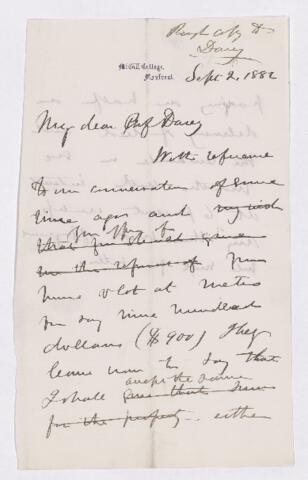 Rough copy to
Darey
McGill College,
Montreal.
Sept 2, 1882
My dear Prof Darey
With reference
to our conversation of some
time ago and my wish
that you should give
me the refusal of your
house & lot at Metis
for say nine hundred
dollars ($900) I beg
leave now to say that
I shall accept the same
give that sum
for the property either